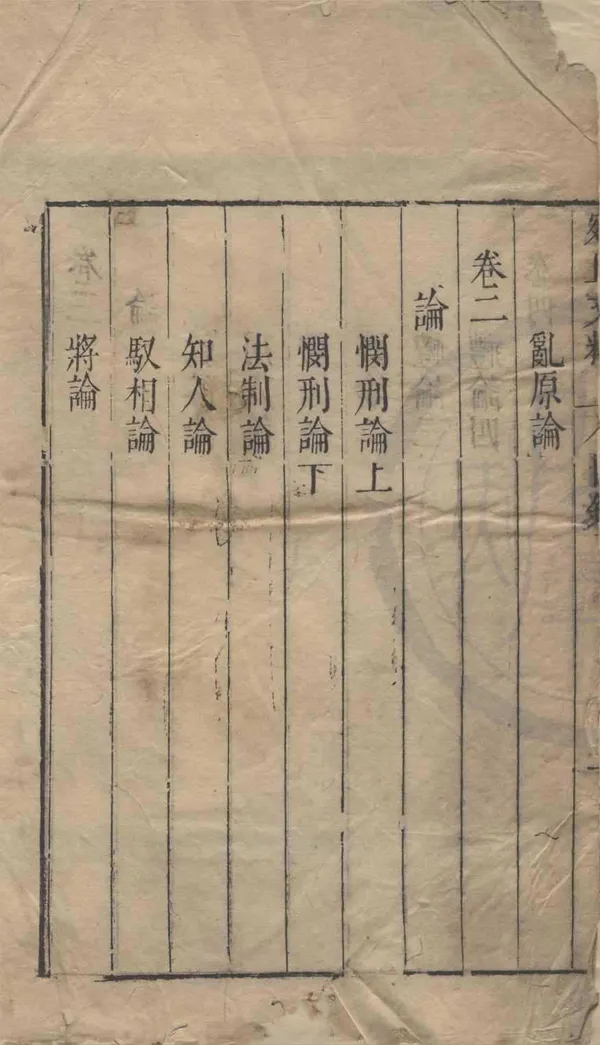 亂原論
卷二
論
憫刑論上
憫刑論下
法制論
知人論
馭相論
將論